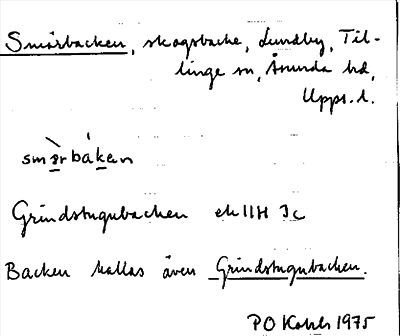 Smörbacken, skogsbacke, Lundby, Til-
linge sn, Åsunda hd,
Upps. l.
smǝ̀rbákǝn
Grindstugubacken ek 11H 3c
Backen kallas även Grindstugubacken.
P O 1975